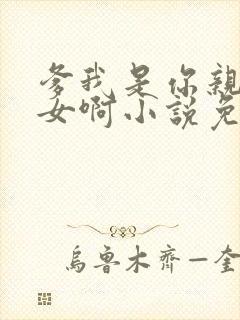 爹我是你親
女啊小説免
烏魯木齊—奎